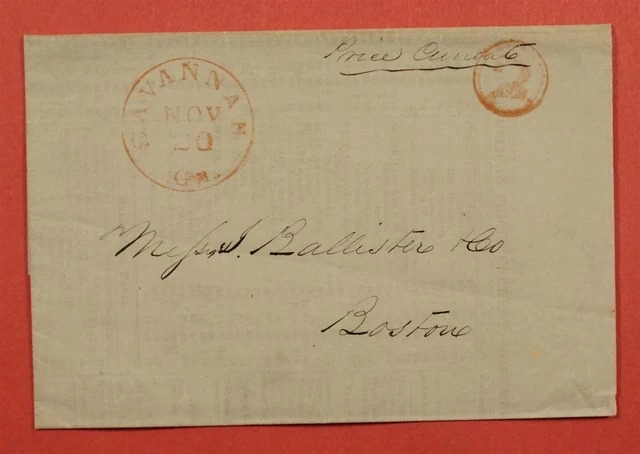 Price Current
2
SAVANNAH
NOV
20
Ga.
Mess. J. Ballister & Co
Boston